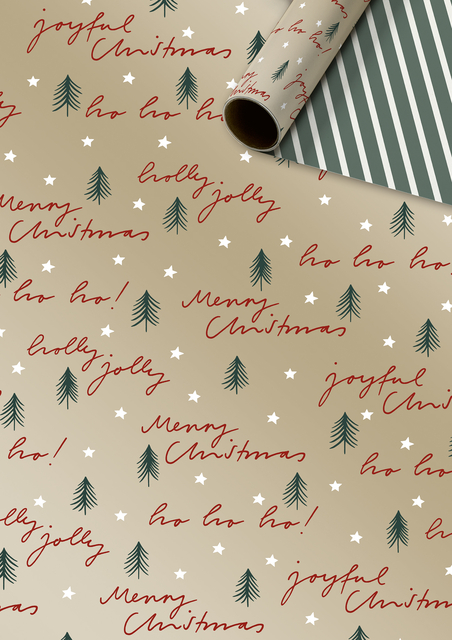 joyful
Christmas
ho ho h
holly
jolly
Merry
Christmas
ho ho ho
ho ho!
Merry
Christmas
holly
jolly
joyful
Chris
Merry
Christmas
ho!
ho ho
ho ho ho!
h
olly
jolly
joyful
Christm
Merry
Christmas
as
ho ho!